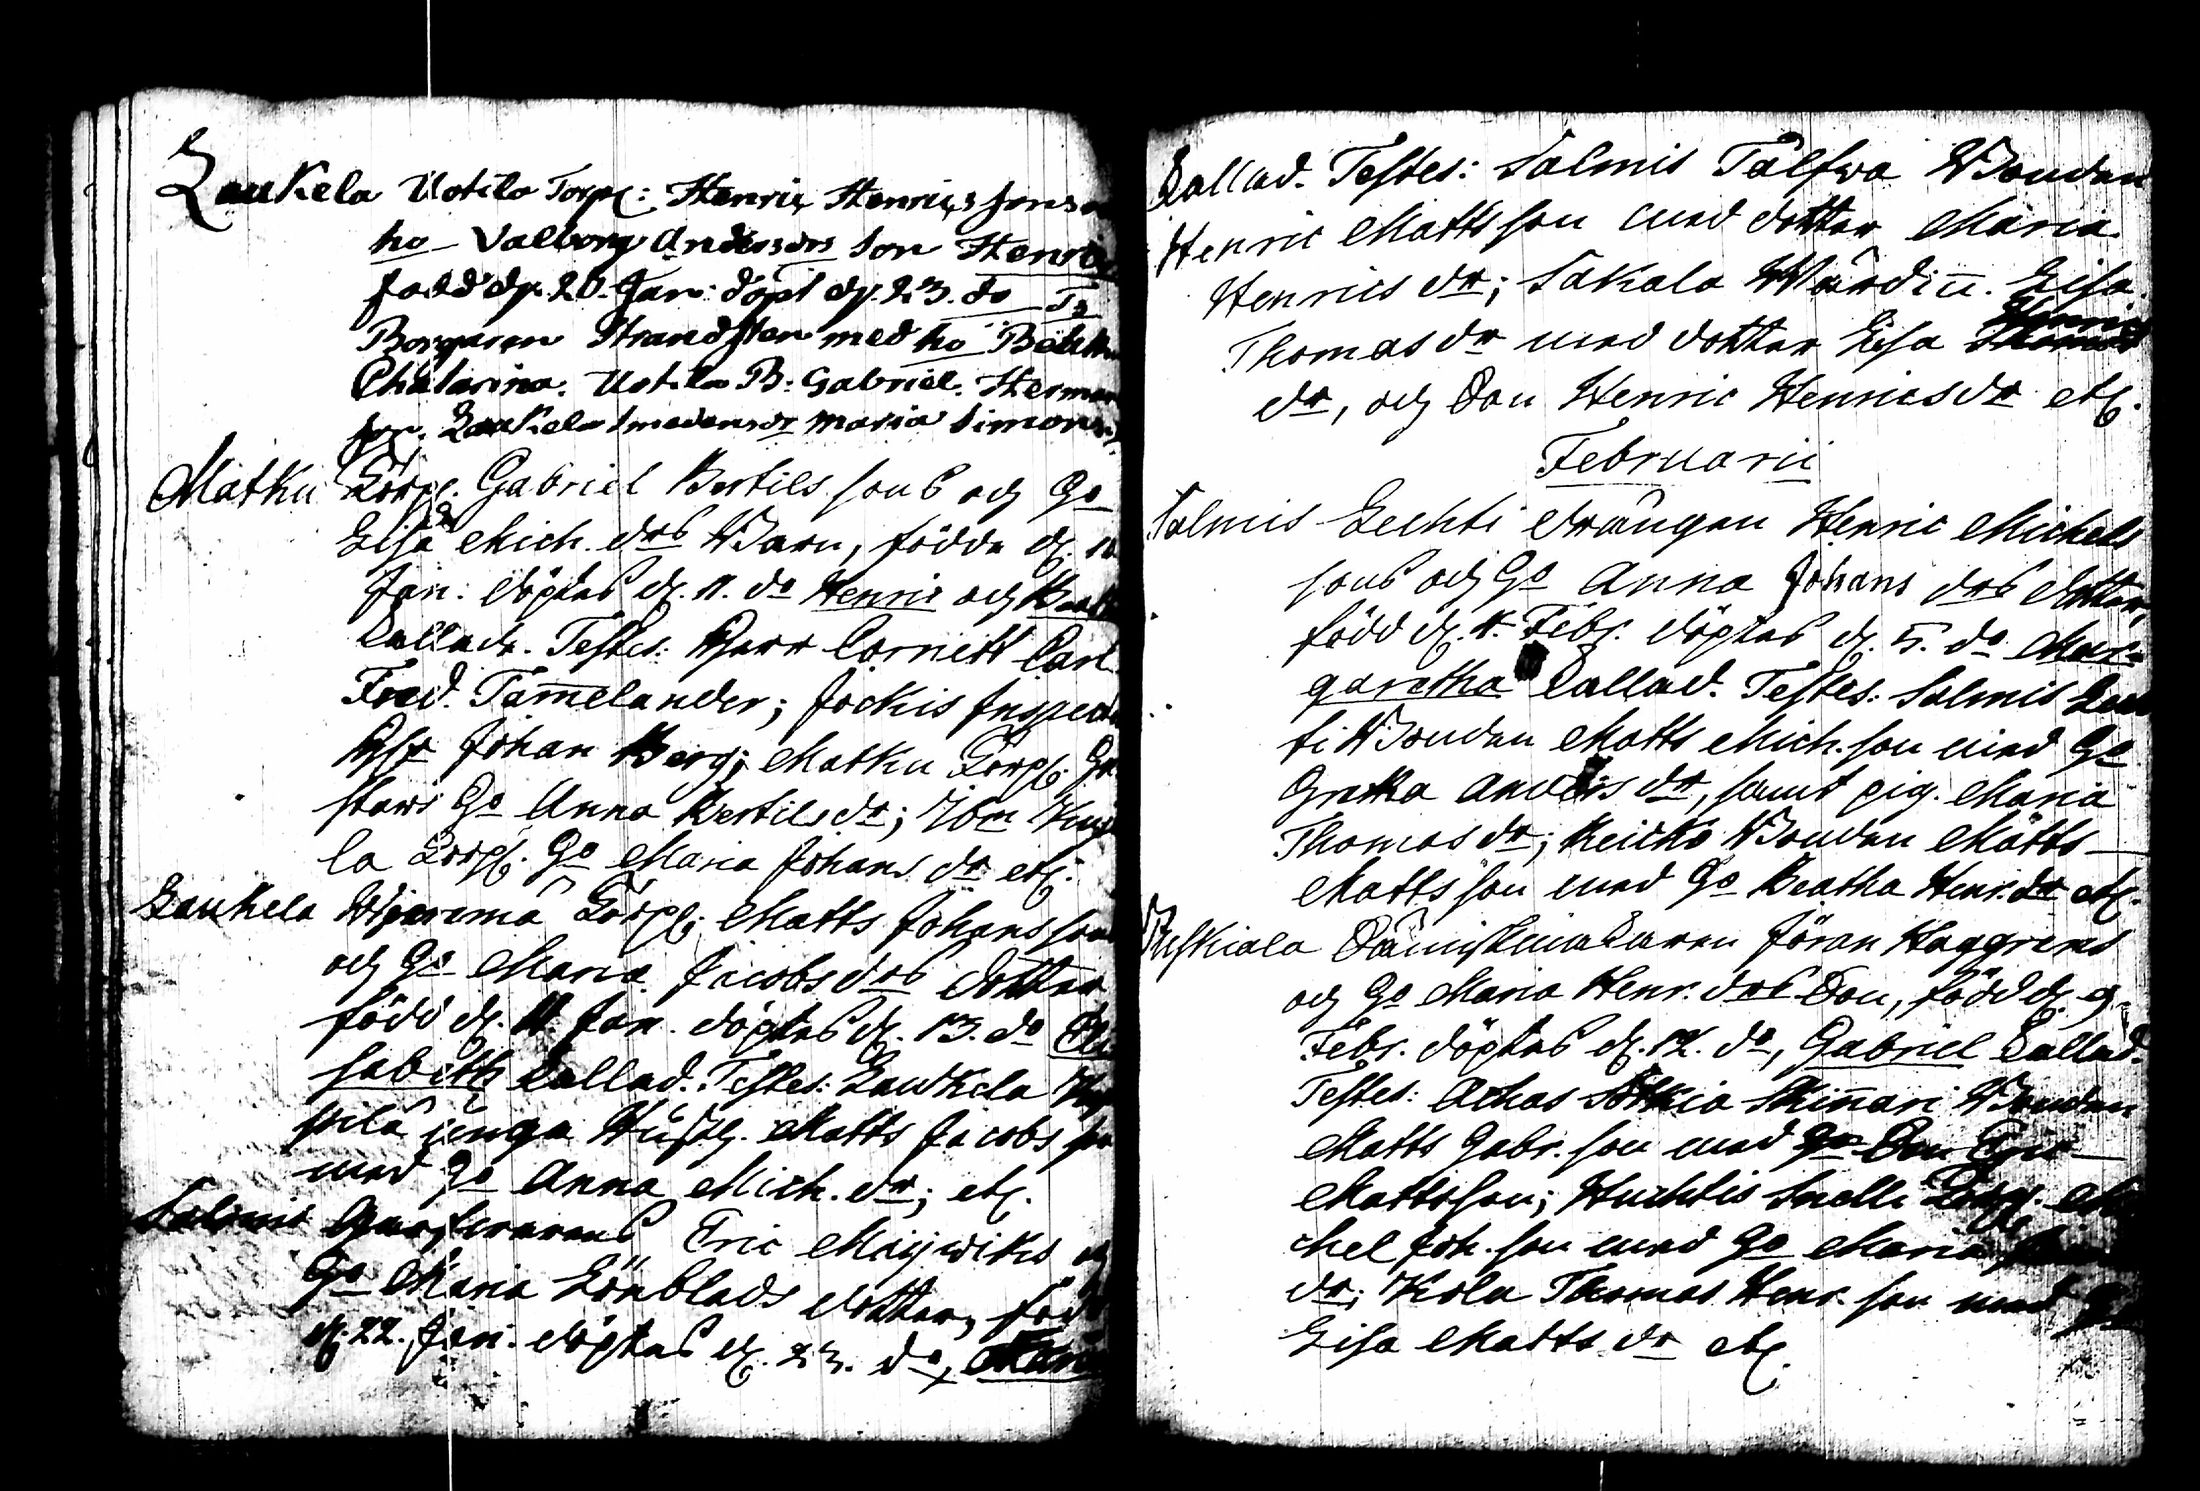 Laukela Uotila Torp: Henric Henricssons
ho Valborg Andersdrs son Henric
född d. 20. Jan: döpt d. 23. do T:
Borgaren Strandsten med ho
Chatarina. Uotila B: Gabriel Herman
son. Laukela Smedens dr Maria Simons
Matku Torp. Gabriel Bertils sons och Go
Lisa Mich. drs Barn, födde d.
Jan: döptes d. 11. do Henric och
Callade. Testes: Herr Cornett Carl
Fred. Tam̄elander; Jockis Inspect
Johan Berg; Matku Torp. Gu
stavs Go Anna Bertils dr;
la Torp. Go Maria Johans dr etc.
Laukela Torp. Matts Johans sons
och Go Maria Jacobs drs dotter
född d. 11 Jan. döptes d. 13. do Eli
sabeth Callad. Testes: Laukela
pilä unga Matts Jacobs son
med Go Anna Mich. dr; etc.
Salmis Eric Majwiks och
Go Maria Lönblads dotter, född
d. 22. Jan. döptes d. 23. do, Maria
Callad. Testes: Salmis Bonden
Henric Matts son med dotter Maria
Henrics dr; Värdin̄. Lisa
Thomas dr med dotter Lisa Henrics
dr, och Son Henric Henrics dr etc.
Februarii
Salmis Lechti drängen Henric Michels
sons och Go Anna Johans drs dotter,
född d. 4. Febr. döptes d. 5. do Mar-
garetha Callad. Testes: Salmis Lech
ti Bonden Matts Mich. son med Go
Gretha Anders dr, samt pig. Maria
Thomas dr; Bonden Matts
Matts son med Go Beatha Henr. dr etc.
Ruskiala Jöran Haggrens
och Go Maria Henr. drs Son, född d. 9.
Febr. döptes d. 12. do, Gabriel Callad.
Testes: Bonden
Matts Gabr. son med Son Eric
Mattsson; Huchtis Snelli Torp. Mi
chel Joh. son med Go Maria
dr; Thomas Henr. son med Go
Lisa Matts dr etc.